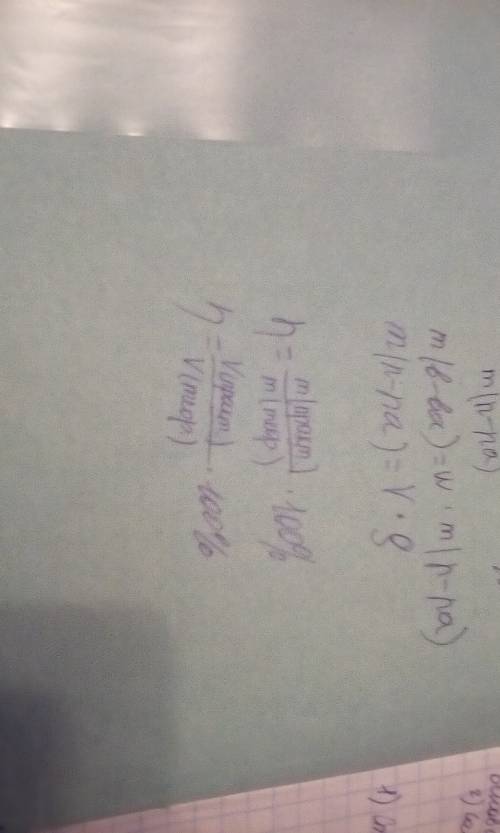 m(р-ра)
m(в-ва) = w · m(р-ра)
m(р-ра) = V · ρ
η = m(практ) / m(теор) · 100%
η = V(практ) / V(теор) · 100%
2)
1)